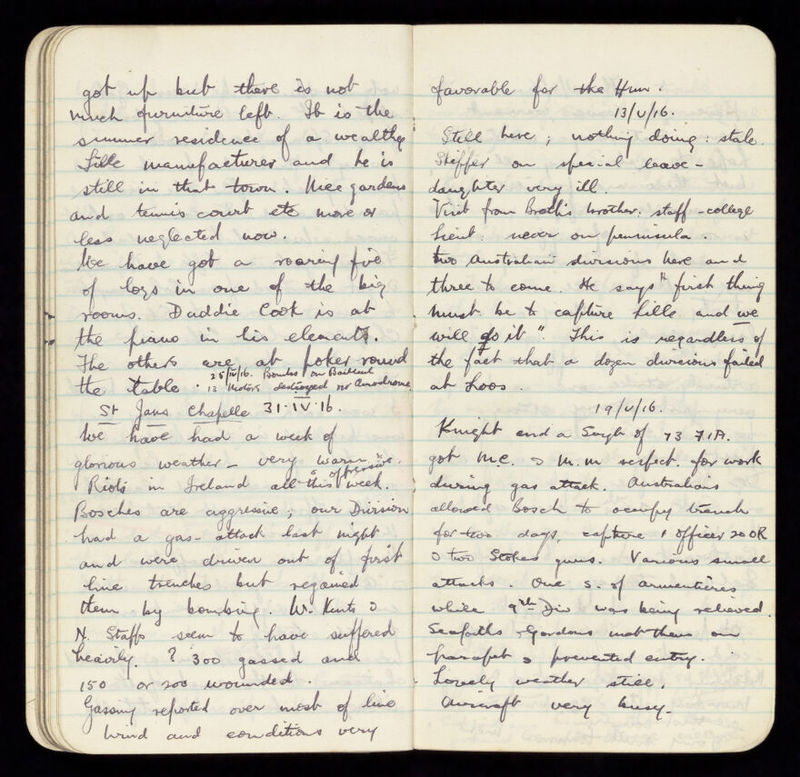 got up but there is not
much furniture left. It is the
summer residence of a wealthy
Lille manufacturer and he is
still in that town. Nice gardens
and tennis court etc more or
less neglected now.
We have got a roaring fire
of logs in one of the big
rooms. Daddie Cook is at
the piano in his element.
The others are at poker round
the table.
28/IV/16. Bombs on Bailleul
13 Motors destroyed nr Aerodrome
St Jans Chapelle 31·IV·16.
We have had a week of
glorious weather – very warm &
oppressive.
Riots in Ireland all this week.
Bosches are aggressive; our Division
had a gas-attack last night
and were driven out of first
line trenches but regained
them by bombing. W. Kents &
N. Staffs seem to have suffered
heavily. ? 300 gassed and
150 or 200 wounded.
Gassing reported over most of line
Wind and conditions very
favorable for the Hun.
13/V/16.
Still here; nothing doing: stale.
on special leave –
daughter very ill.
Visit from brother: staff-college
Lieut: never on peninsula.
two Australian divisions here and
three to come. He says "first thing
must be to capture Lille and we
will do it" This is regardless of
the fact that a dozen divisions failed
at Loos.
19/V/16.
Knight and a Sergt of 73 F.A.
got M.C. & M.M respect. for work
during gas attack. Australians
allowed Bosch to occupy trench
for two days, capture 1 officer 20 OR
& two Stokes guns. Various small
attacks. One S. of Armentières
while 9th Div was being relieved.
Seaforths & Gordons met them on
parapet & prevented entry.
Lovely weather still.
Aircraft very busy–